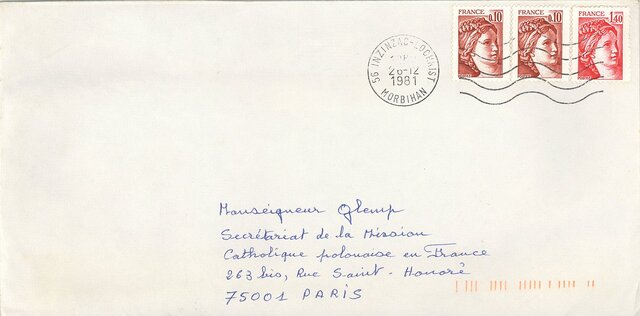 FRANCE 0,10
FRANCE 0,10
FRANCE 1,40
56 INZINZAC-LOCHRIST
26-12
1981
MORBIHAN
Monseigneur Glemp
Secrétariat de la Mission
Catholique polonaise en France
263 bis, Rue Saint-Honoré
75001 PARIS